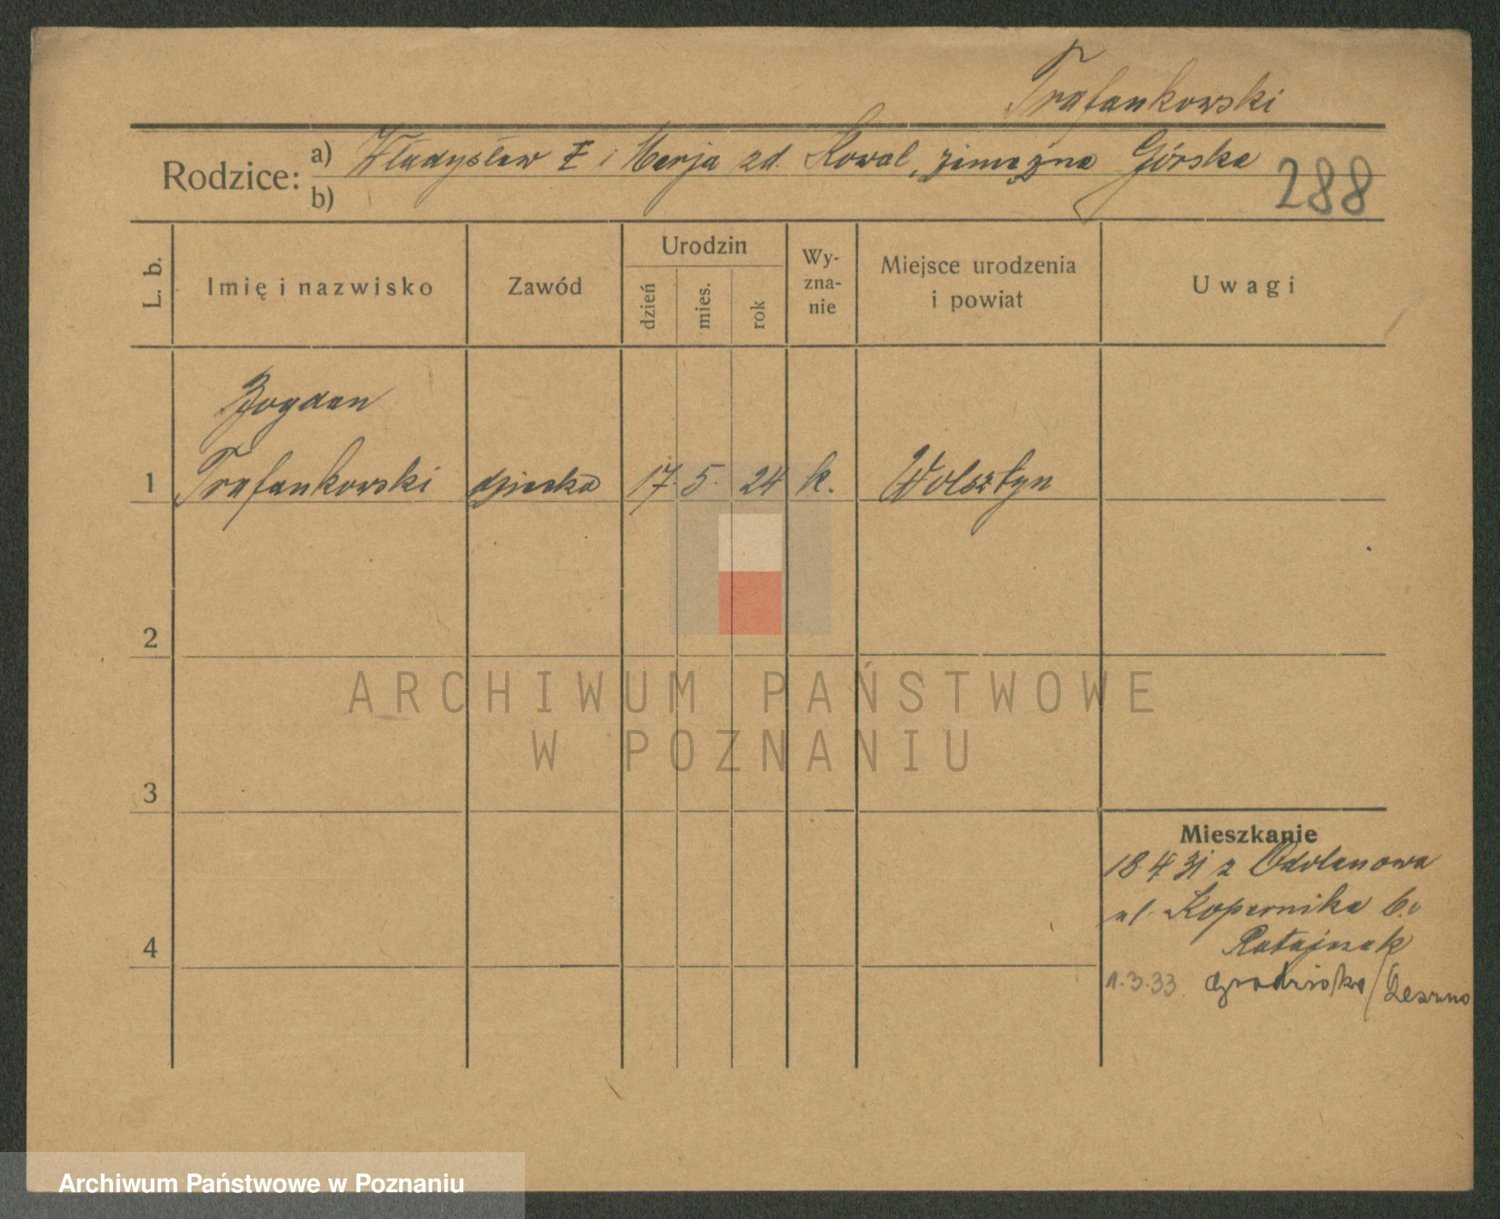 Trafankowski
Rodzice: a) Władysław Ł i Marja zd. Kowal, zamężna Górska
b)
288
L. b.
Imię i nazwisko
Zawód
Urodzin
dzień
mies.
rok
Wy-
zna-
nie
Miejsce urodzenia
i powiat
Uwagi
Bogdan
1 Trafankowski dziecko 17. 5. 24 k. Wolsztyn
2
3
4
Mieszkanie
18.4 31 z Odolanowa
ul. Kopernika 6.
Ratajczak
1.3.33. Grodzisko / Leszno
ARCHIWUM PAŃSTWOWE
W POZNANIU
Archiwum Państwowe w Poznaniu